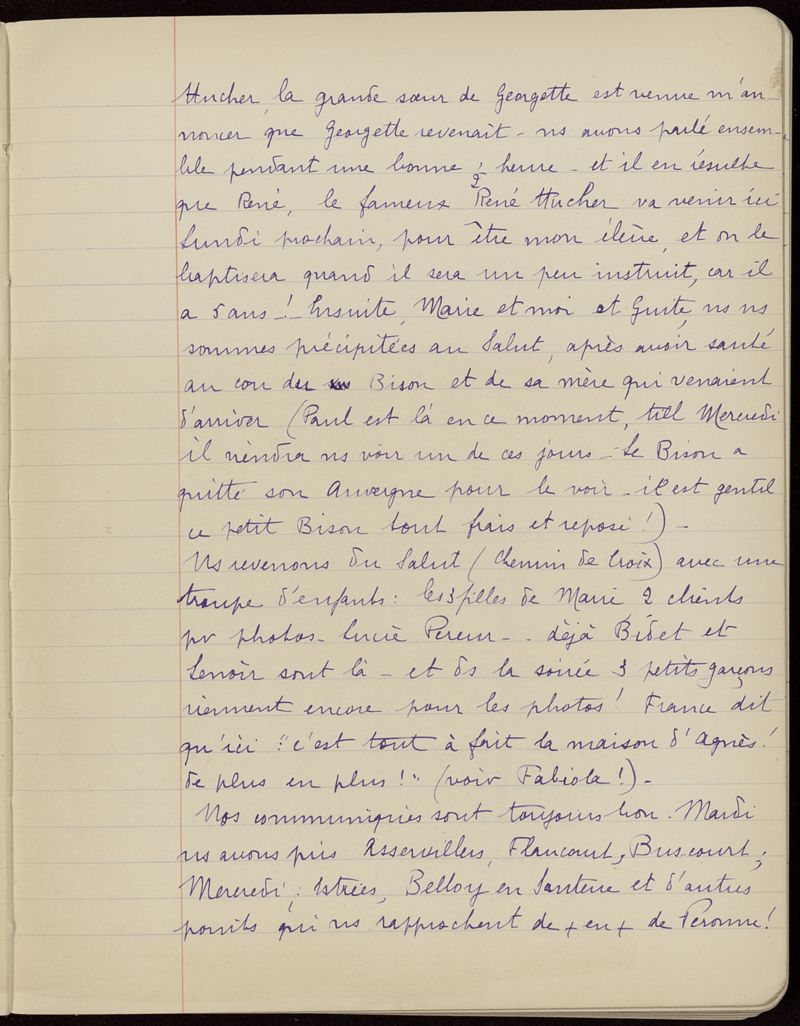 Hucher, la grande sœur de Georgette est venue m'an-
noncer que Georgette revenait - ns avons parlé ensem-
ble pendant une bonne 1/2 heure - et il en résulte
que René, le fameux René Hucher va venir ici
Lundi prochain, pour être mon élève, et on le
baptisera quand il sera un peu instruit, car il
a 5 ans - ! - Ensuite, Marie et moi et Guite, ns ns
sommes précipitées au Salut, après avoir sauté
au cou du Bison et de sa mère qui venaient
d'arriver (Paul est là en ce moment, till Mercredi
il viendra ns voir un de ces jours - Le Bison a
quitté son Auvergne pour le voir - il est gentil
ce petit Bison tout frais et reposé !) -
Ns revenons du Salut (Chemin de Croix) avec une
troupe d'enfants : les 3 filles de Marie, 2 clients
pr photos - Lucie Pereur - - déjà Bidet et
Lenoir sont là - et ds la soirée 3 petits garçons
viennent encore pour les photos ! France dit
qu'ici : "c'est tout à fait la maison d'Agnès !
de plus en plus !" (voir Fabiola !) -
Nos communiqués sont toujours bon. Mardi
ns avons pris Asservillers, Flaucourt, Buscourt ;
Mercredi : Estrées, Belloy en Santerre et d'autres
points qui ns rapprochent de + en + de Péronne !